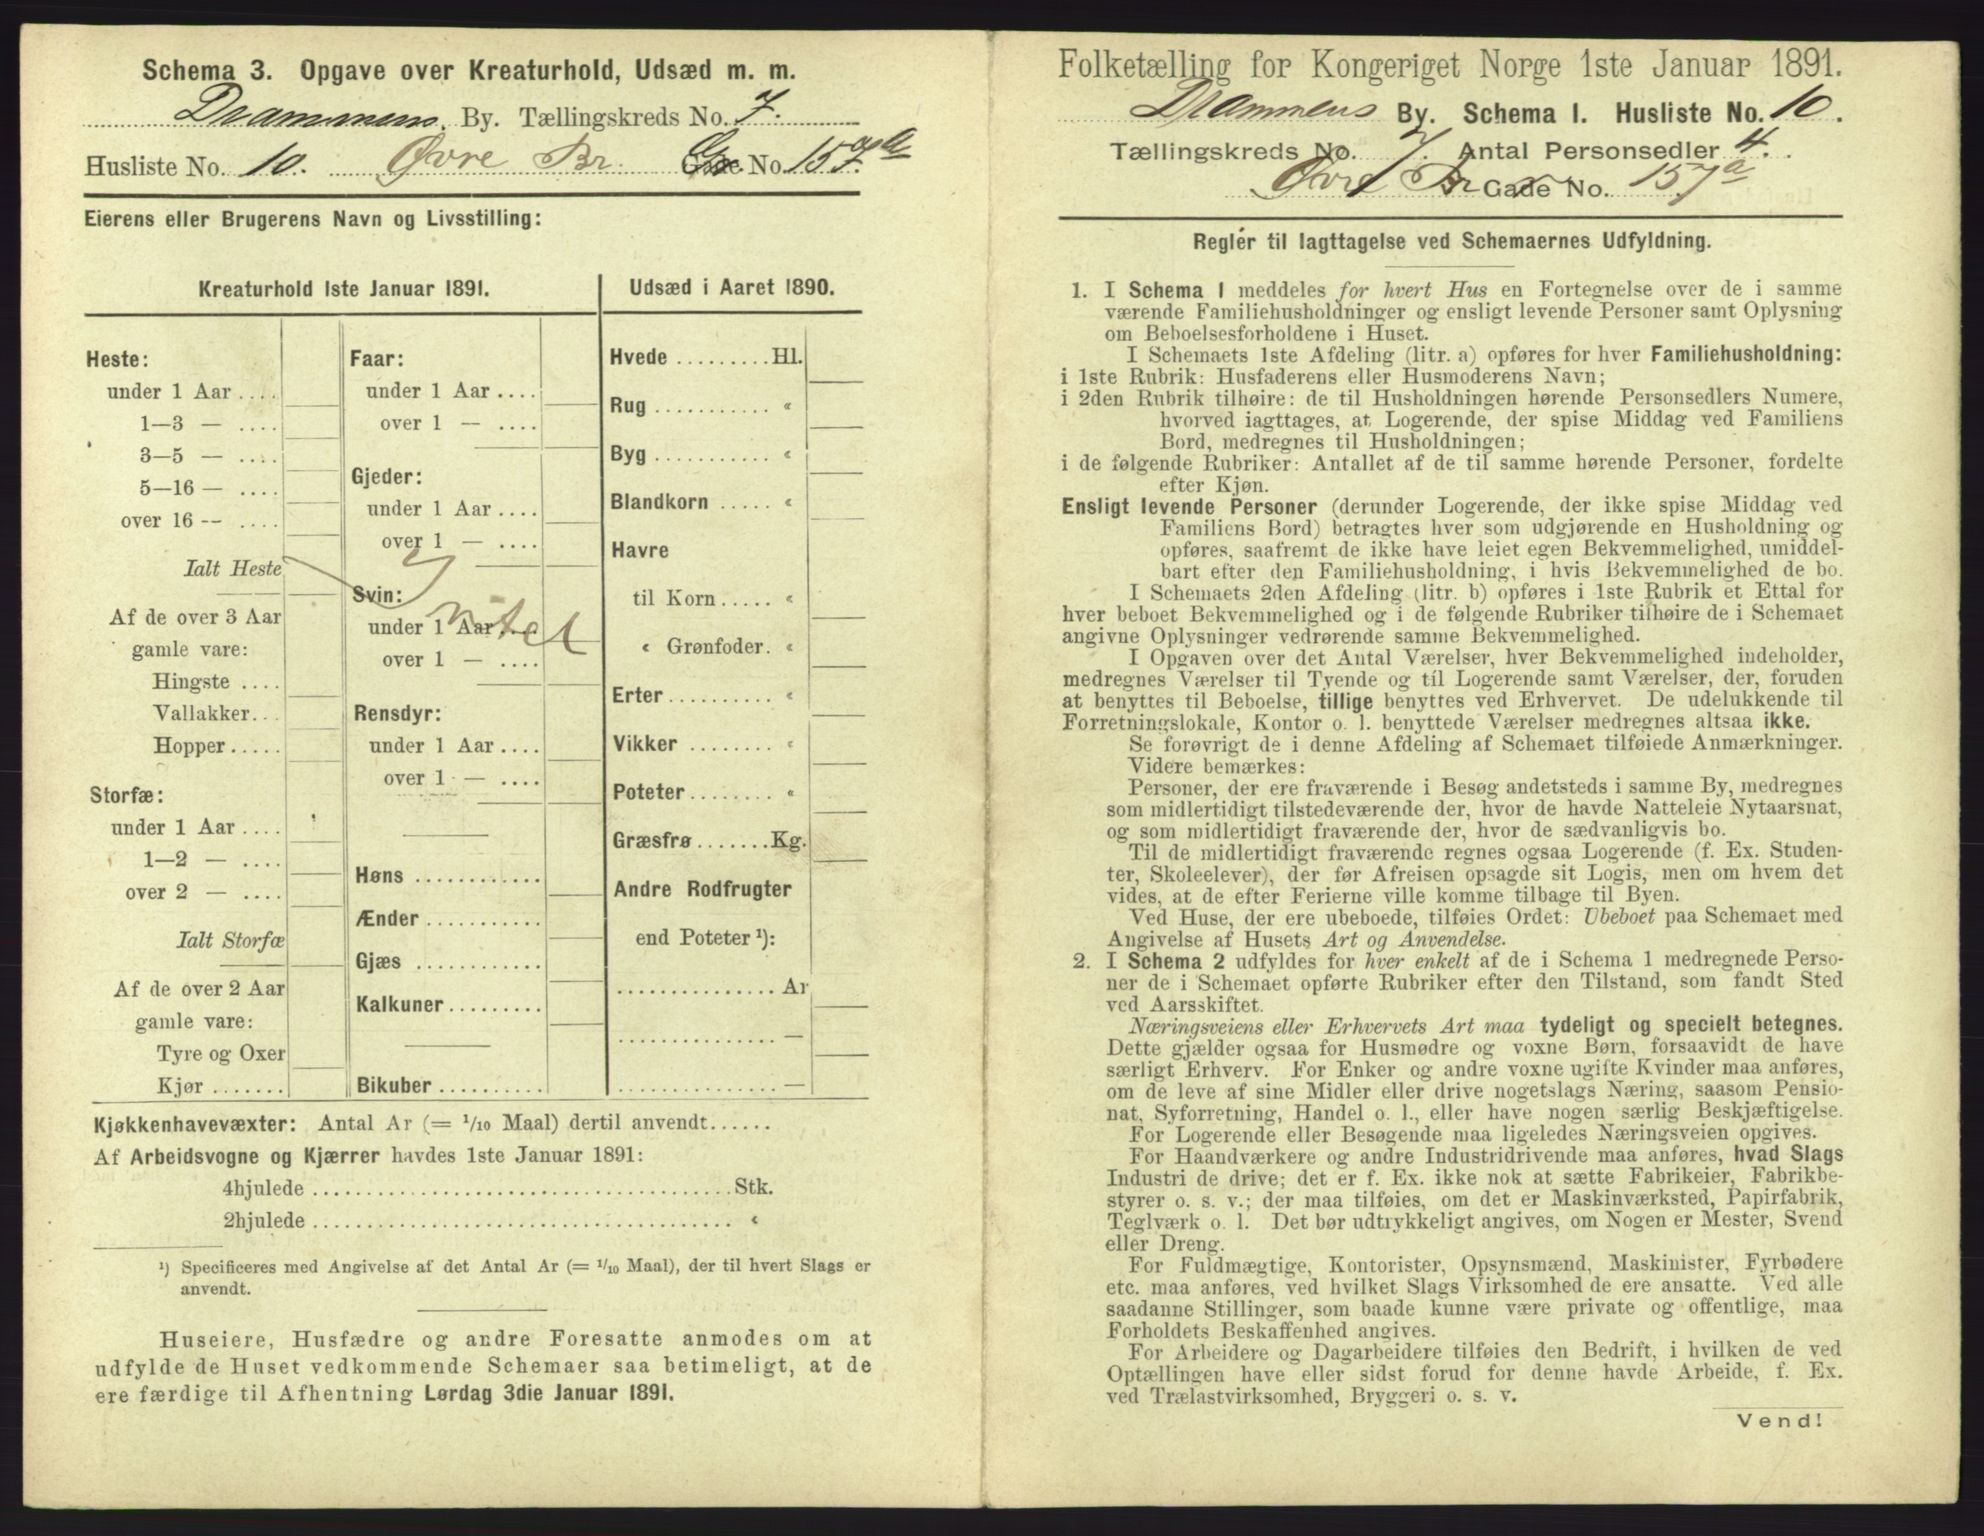 Schema 3. Opgave over Kreaturhold, Udsæd m. m.
Drammens By. Tællingskreds No. 7.
Husliste No. 10. Øvre Br. No. 157a
Eierens eller Brugerens Navn og Livsstilling:
Kreaturhold 1ste Januar 1891.
Heste:
under 1 Aar ....
1—3 — ....
3—5 — ....
5—16 — ....
over 16 -- ....
Ialt Heste
Af de over 3 Aar
gamle vare:
Hingste ....
Vallakker...
Hopper.....
Storfæ:
under 1 Aar ....
1—2 — ....
over 2 — ....
Ialt Storfæ
Af de over 2 Aar
gamle vare:
Tyre og Oxer
Kjør .......
Faar:
under 1 Aar ....
over 1 — ....
Gjeder:
under 1 Aar ....
over 1 — ....
Svin:
under 1 Aar
over 1 — ....
Rensdyr:
under 1 Aar ....
over 1 — ....
Høns ............
Ænder ...........
Gjæs ............
Kalkuner .........
Bikuber ..........
Udsæd i Aaret 1890.
Hvede .........Hl.
Rug ........... «
Byg ........... «
Blandkorn ..... «
Havre
til Korn..... «
« Grønfoder. «
Erter .......... «
Vikker ........ «
Poteter........ «
Græsfrø .......Kg.
Andre Rodfrugter
end Poteter ¹):
............... Ar
............... —
............... —
Kjøkkenhavevæxter: Antal Ar (= 1/10 Maal) dertil anvendt......
Af Arbeidsvogne og Kjærrer havdes 1ste Januar 1891:
4hjulede ........................................Stk.
2hjulede ........................................ «
¹) Specificeres med Angivelse af det Antal Ar (= 1/10 Maal), der til hvert Slags er
anvendt.
Huseiere, Husfædre og andre Foresatte anmodes om at
udfylde de Huset vedkommende Schemaer saa betimeligt, at de
ere færdige til Afhentning Lørdag 3die Januar 1891.
Folketælling for Kongeriget Norge 1ste Januar 1891.
Drammens By. Schema I. Husliste No. 10.
Tællingskreds No. 7. Antal Personsedler 4.
Øvre Br Gade No. 157a
Reglér til Iagttagelse ved Schemaernes Udfyldning.
1. I Schema I meddeles for hvert Hus en Fortegnelse over de i samme
værende Familiehusholdninger og ensligt levende Personer samt Oplysning
om Beboelsesforholdene i Huset.
I Schemaets 1ste Afdeling (litr. a) opføres for hver Familiehusholdning:
i 1ste Rubrik: Husfaderens eller Husmoderens Navn;
i 2den Rubrik tilhøire: de til Husholdningen hørende Personsedlers Numere,
hvorved iagttages, at Logerende, der spise Middag ved Familiens
Bord, medregnes til Husholdningen;
i de følgende Rubriker: Antallet af de til samme hørende Personer, fordelte
efter Kjøn.
Ensligt levende Personer (derunder Logerende, der ikke spise Middag ved
Familiens Bord) betragtes hver som udgjørende en Husholdning og
opføres, saafremt de ikke have leiet egen Bekvemmelighed, umiddel-
bart efter den Familiehusholdning, i hvis Bekvemmelighed de bo.
I Schemaets 2den Afdeling (litr. b) opføres i 1ste Rubrik et Ettal for
hver beboet Bekvemmelighed og i de følgende Rubriker tilhøire de i Schemaet
angivne Oplysninger vedrørende samme Bekvemmelighed.
I Opgaven over det Antal Værelser, hver Bekvemmelighed indeholder,
medregnes Værelser til Tyende og til Logerende samt Værelser, der, foruden
at benyttes til Beboelse, tillige benyttes ved Erhvervet. De udelukkende til
Forretningslokale, Kontor o. l. benyttede Værelser medregnes altsaa ikke.
Se forøvrigt de i denne Afdeling af Schemaet tilføiede Anmærkninger.
Videre bemærkes:
Personer, der ere fraværende i Besøg andetsteds i samme By, medregnes
som midlertidigt tilstedeværende der, hvor de havde Natteleie Nytaarsnat,
og som midlertidigt fraværende der, hvor de sædvanligvis bo.
Til de midlertidigt fraværende regnes ogsaa Logerende (f. Ex. Studen-
ter, Skoleelever), der før Afreisen opsagde sit Logis, men om hvem det
vides, at de efter Ferierne ville komme tilbage til Byen.
Ved Huse, der ere ubeboede, tilføies Ordet: Ubeboet paa Schemaet med
Angivelse af Husets Art og Anvendelse.
2. I Schema 2 udfyldes for hver enkelt af de i Schema 1 medregnede Perso-
ner de i Schemaet opførte Rubriker efter den Tilstand, som fandt Sted
ved Aarsskiftet.
Næringsveiens eller Erhvervets Art maa tydeligt og specielt betegnes.
Dette gjælder ogsaa for Husmødre og voxne Børn, forsaavidt de have
særligt Erhverv. For Enker og andre voxne ugifte Kvinder maa anføres,
om de leve af sine Midler eller drive nogetslags Næring, saasom Pensio-
nat, Syforretning, Handel o. l., eller have nogen særlig Beskjæftigelse.
For Logerende eller Besøgende maa ligeledes Næringsveien opgives.
For Haandværkere og andre Industridrivende maa anføres, hvad Slags
Industri de drive; det er f. Ex. ikke nok at sætte Fabrikeier, Fabrikbe-
styrer o. s. v.; der maa tilføies, om det er Maskinværksted, Papirfabrik,
Teglværk o. l. Det bør udtrykkeligt angives, om Nogen er Mester, Svend
eller Dreng.
For Fuldmægtige, Kontorister, Opsynsmænd, Maskinister, Fyrbødere
etc. maa anføres, ved hvilket Slags Virksomhed de ere ansatte. Ved alle
saadanne Stillinger, som baade kunne være private og offentlige, maa
Forholdets Beskaffenhed angives.
For Arbeidere og Dagarbeidere tilføies den Bedrift, i hvilken de ved
Optællingen have eller sidst forud for denne havde Arbeide, f. Ex.
ved Trælastvirksomhed, Bryggeri o. s. v.
Vend!